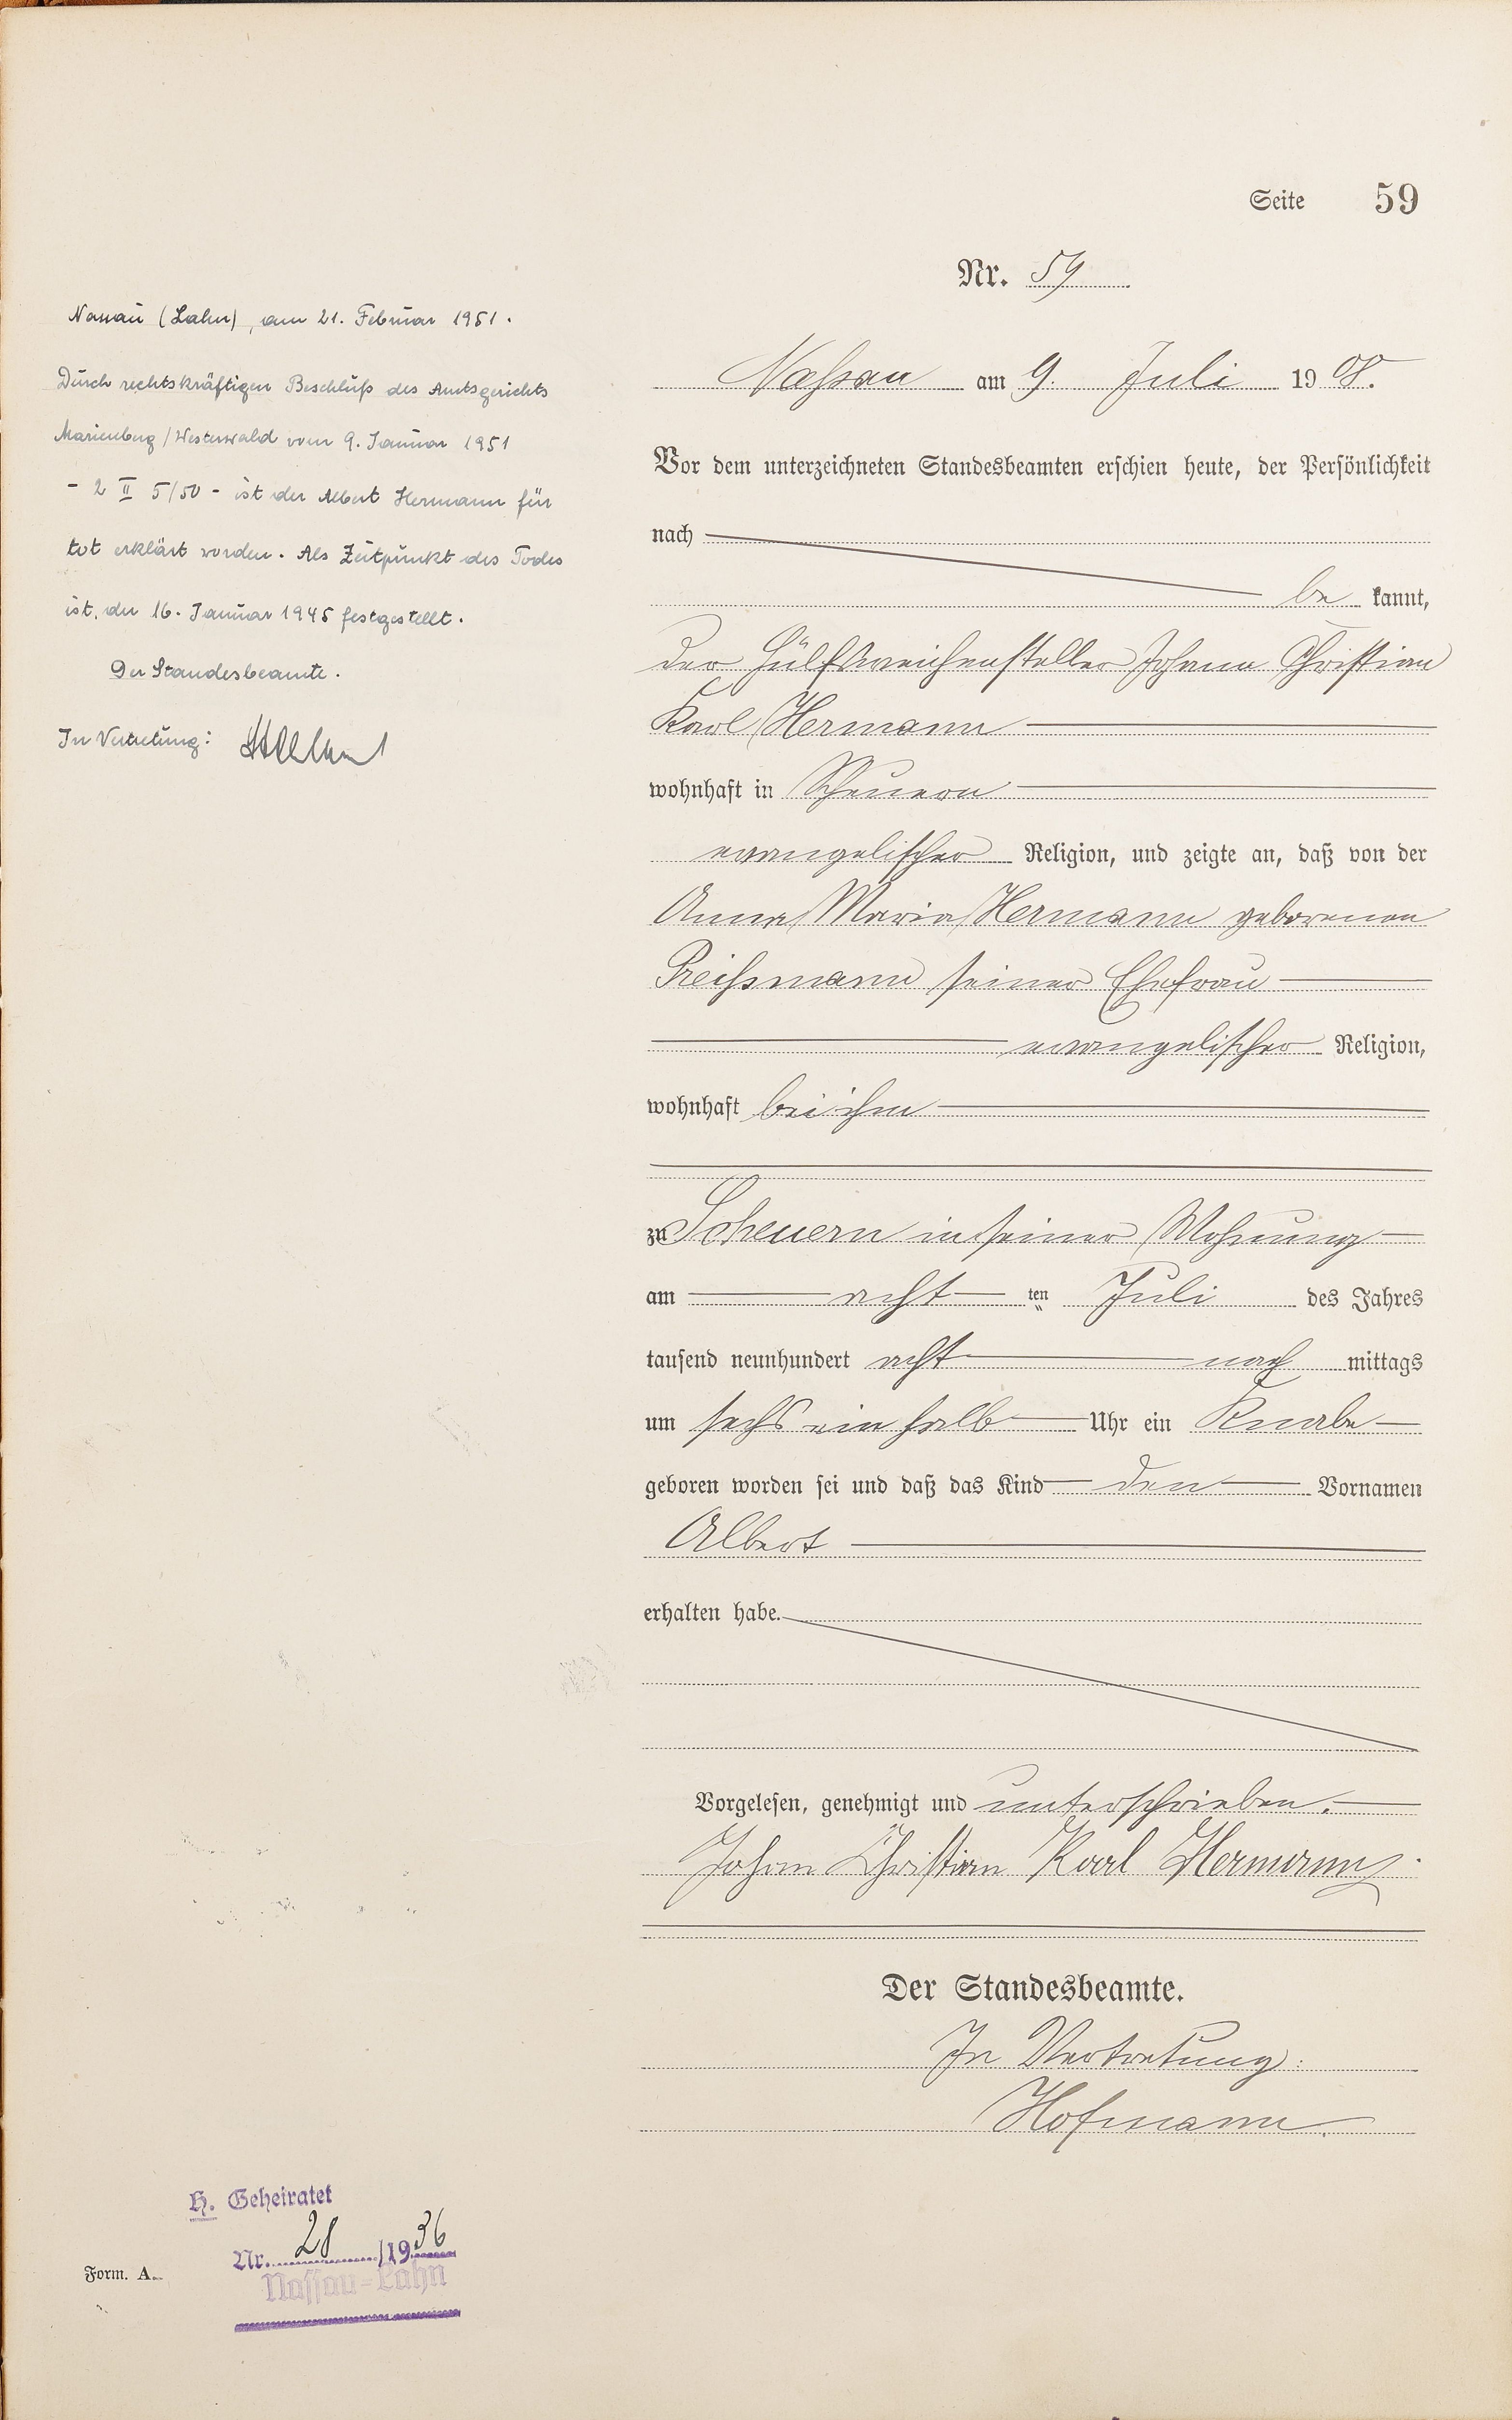 Seite 59
Nr. 59
Nassau (Lahn), am 21. Februar 1951.
Durch rechtskräftigen Beschluß des Amtsgerichts
Marienberg/Westerwald vom 9. Januar 1951
- 2 II 5/50 - ist der Albert Hermann für
tot erklärt worden. Als Zeitpunkt des Todes
ist der 16. Januar 1945 festgestellt.
Der Standesbeamte.
In Vertretung:
Naßau am 9. Juli 1908.
Vor dem unterzeichneten Standesbeamten erschien heute, der Persönlichkeit
nach
be kannt,
der Hülfsweichensteller Johann Christian
Karl Hermann
wohnhaft in Scheuern
evangelischer Religion, und zeigte an, daß von der
Anna Maria Hermann geborenen
Preißmann seiner Ehefrau
evangelischer Religion,
wohnhaft bei ihm
zu Scheuern in seiner Wohnung
am acht ten Juli des Jahres
tausend neunhundert acht nach mittags
um sechs ein halb Uhr ein Knabe
geboren worden sei und daß das Kind den Vornamen
Albert
erhalten habe.
Vorgelesen, genehmigt und unterschrieben.
Johann Christian Karl Hermann.
Der Standesbeamte.
In Vertretung:
Hofmann.
H. Geheiratet
Nr. 28 /1936
Nassau-Lahn
Form. A.